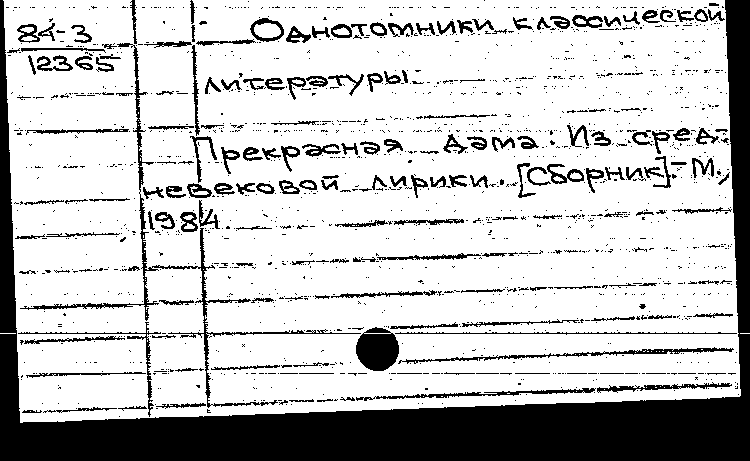 84-3
12365
Однотомники классической
литературы.
Прекрасная дама: Из сред-
невековой лирики. [Сборник].- М.,
1984.